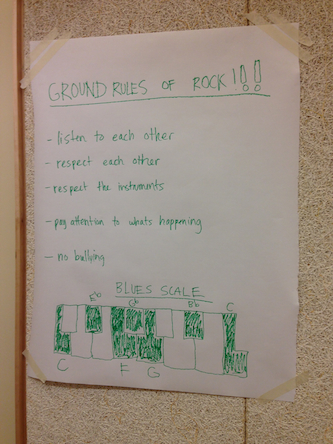 GROUND RULES OF ROCK!!!
- listen to each other
- respect each other
- respect the instruments
- pay attention to whats happening
- no bullying
BLUES SCALE
Eb Gb Bb C
C F G